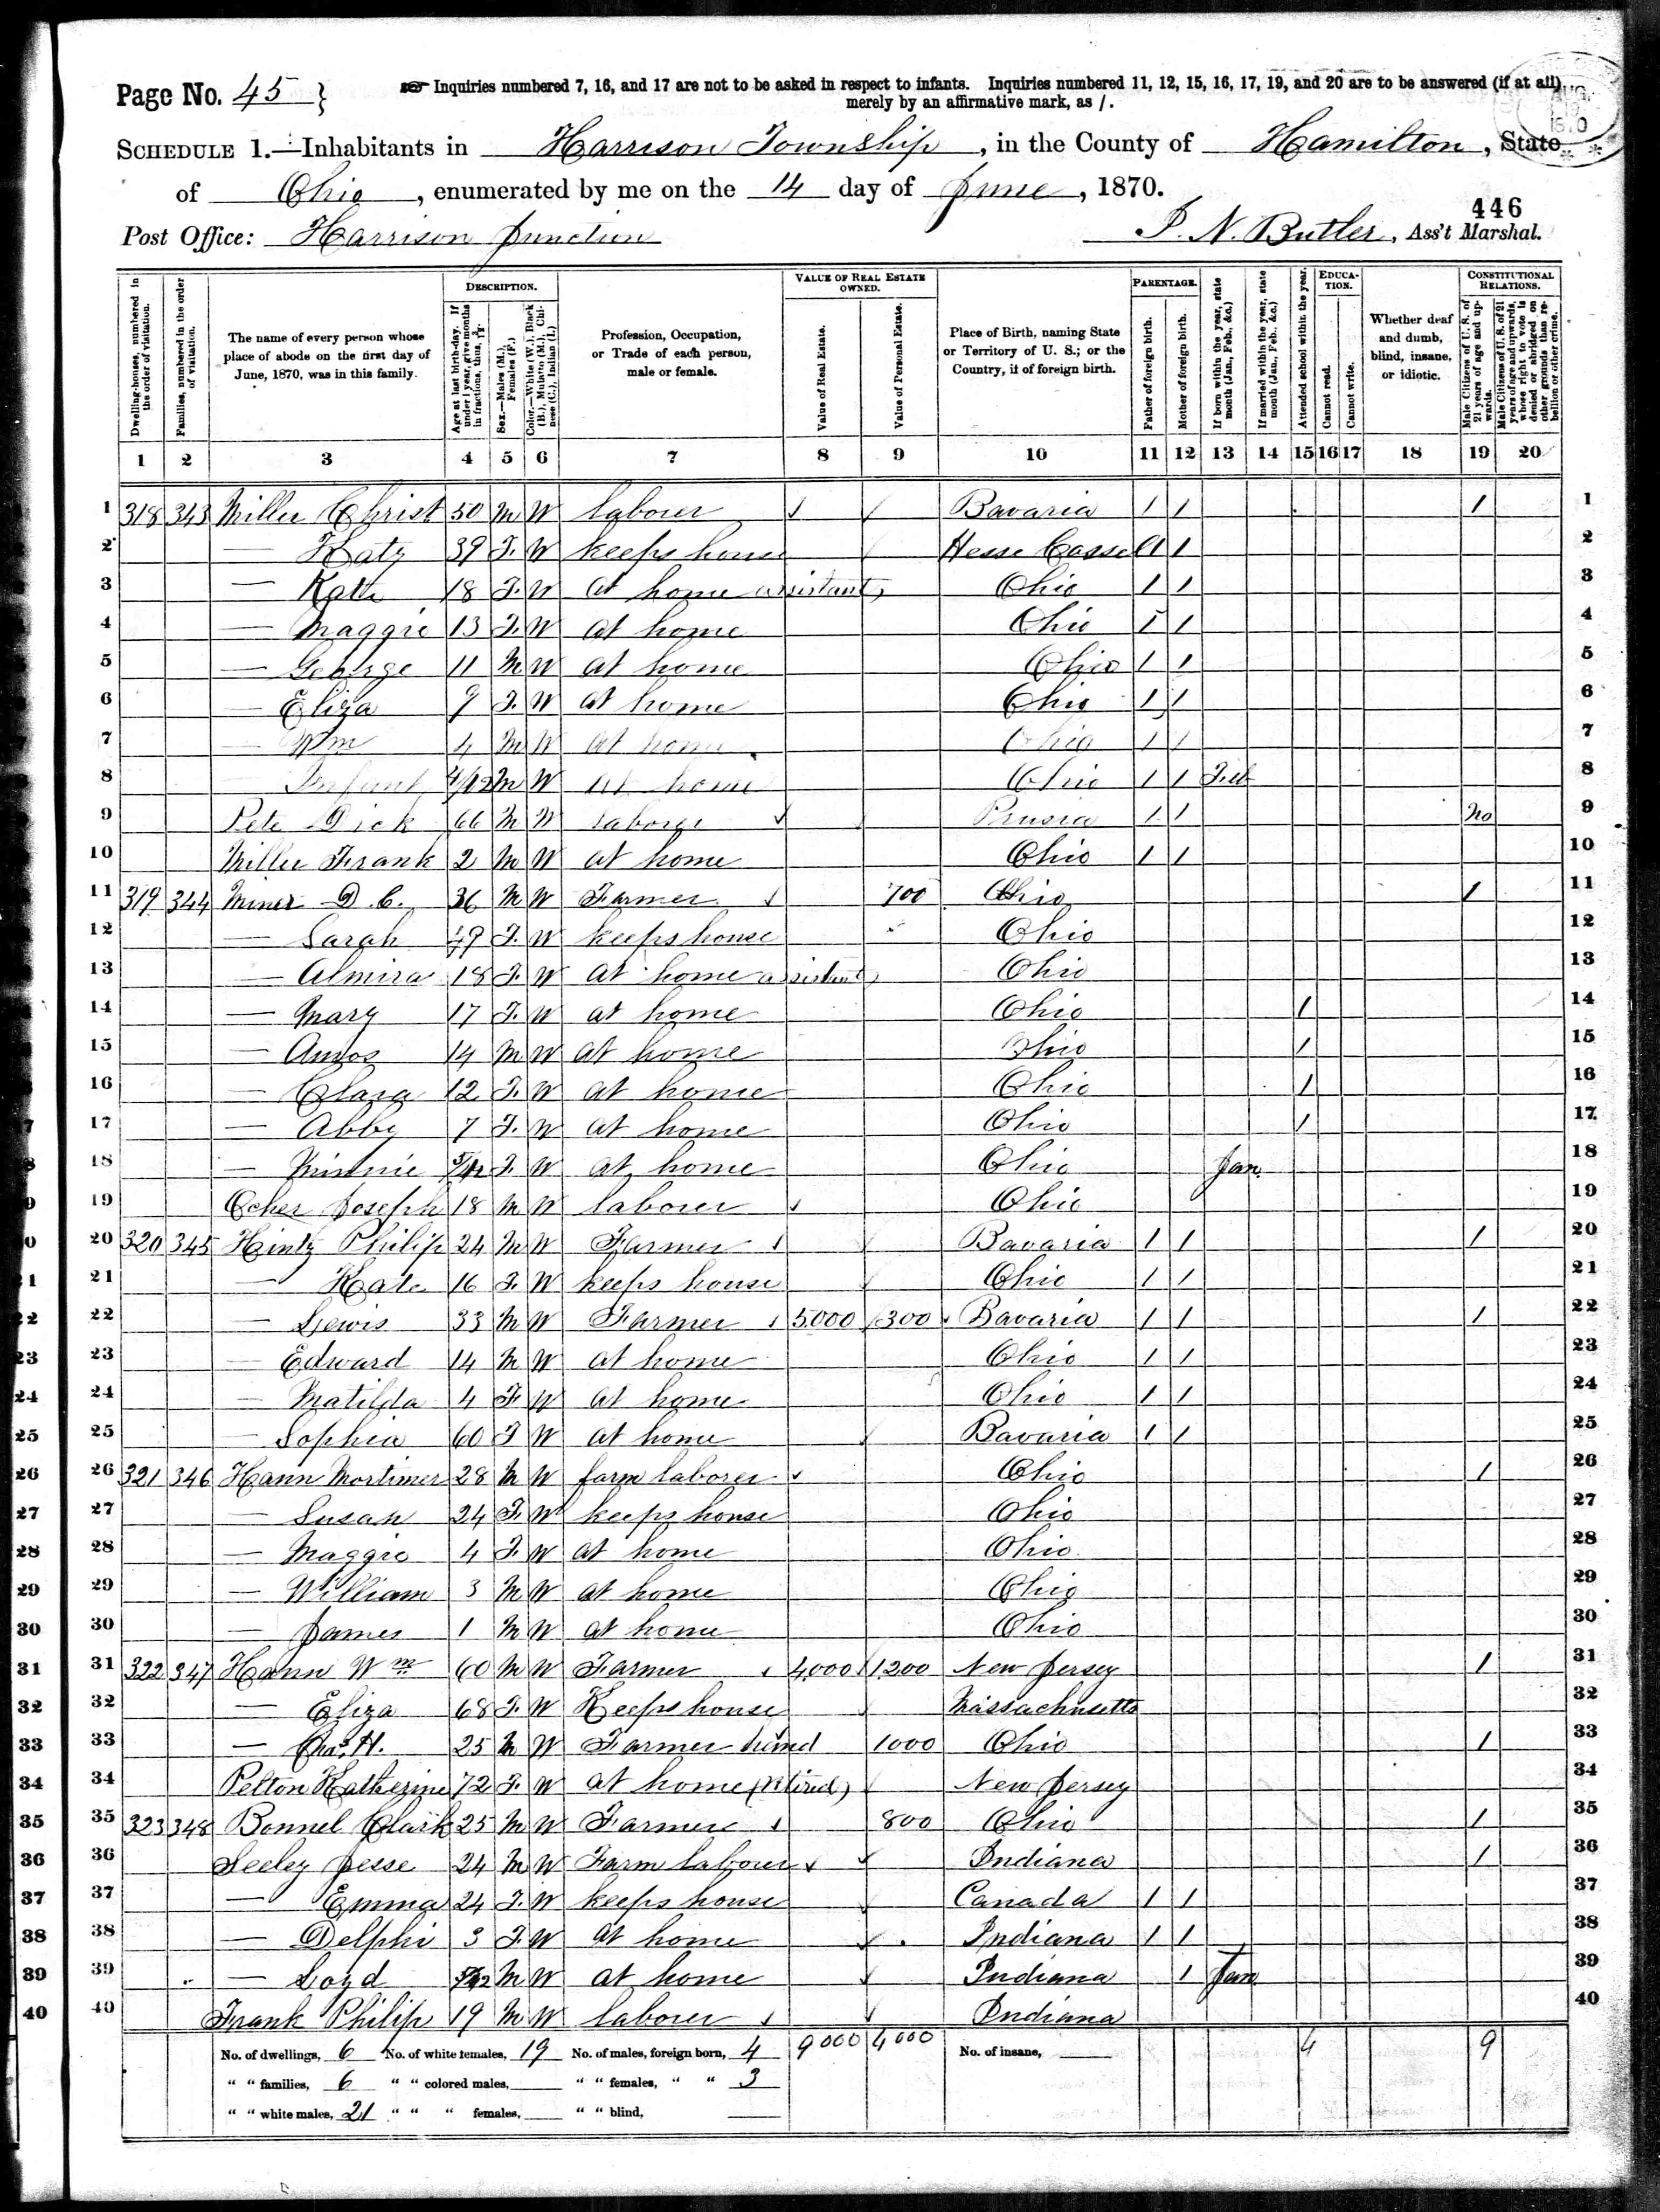 Page No. 45 }
Inquiries numbered 7, 16, and 17 are not to be asked in respect to infants. Inquiries numbered 11, 12, 15, 16, 17, 19, and 20 are to be answered (if at all)
merely by an affirmative mark, as /.
SCHEDULE 1.—Inhabitants in Harrison Township, in the County of Hamilton, State
of Ohio, enumerated by me on the 14 day of June, 1870.
446
Post Office: Harrison Junction
N. Butler, Ass't Marshal.
DESCRIPTION. VALUE OF REAL ESTATE OWNED. PARENTAGE. EDUCATION. CONSTITUTIONAL RELATIONS.
Dwelling-houses, numbered in the order of visitation.
Families, numbered in the order of visitation.
The name of every person whose place of abode on the first day of June, 1870, was in this family.
Age at last birth-day. If under 1 year, give months in fractions, thus, 3/12.
Sex.—Males (M.), Females (F.)
Color.—White (W.), Black (B.), Mulatto (M.), Chinese (C.), Indian (I.)
Profession, Occupation, or Trade of each person, male or female.
Value of Real Estate.
Value of Personal Estate.
Place of Birth, naming State or Territory of U. S.; or the Country, if of foreign birth.
Father of foreign birth.
Mother of foreign birth.
If born within the year, state month (Jan., Feb., &c.)
If married within the year, state month (Jan., Feb., &c.)
Attended school within the year.
Cannot read.
Cannot write.
Whether deaf and dumb, blind, insane, or idiotic.
Male Citizens of U. S. of 21 years of age and upwards.
Male Citizens of U. S. of 21 years of age and upwards, whose right to vote is denied or abridged on other grounds than rebellion or other crime.
1 2 3 4 5 6 7 8 9 10 11 12 13 14 15 16 17 18 19 20
1 318 343 Miller Christ 50 M W laborer Bavaria 1 1 1 1
2 — Katy 39 F. W keeps house Hesse Cassel 1 1 2
3 — Kate 18 F. W at home assistant Ohio 1 1 3
4 — Maggie 13 F. W at home Ohio 1 1 4
5 — George 11 M W at home Ohio 1 1 5
6 — Eliza 9 F. W at home Ohio 1 1 6
7 — Wm 4 M W at home Ohio 1 1 7
8 Infant 4/12 M W at home Ohio 1 1 Feb 8
9 Pete Dick 66 M W laborer Prusia 1 1 No 9
10 Miller Frank 2 M W at home Ohio 1 1 10
11 319 344 Miner D. C. 36 M W Farmer 700 Ohio 1 11
12 — Sarah F. W keeps house Ohio 12
13 — Almira 18 F. W at home assistant Ohio 13
14 — Mary 17 F. W at home Ohio 1 14
15 — Amos 14 M W at home Ohio 1 15
16 — Clara 12 F. W at home Ohio 1 16
17 — Abby 7 F. W at home Ohio 1 17
18 — Minnie 5/12 F. W at home Ohio Jan. 18
19 Ocher Joseph 18 M W laborer Ohio 19
20 320 345 Hintz Philip 24 M W Farmer Bavaria 1 1 1 20
21 — Kate 16 F. W keeps house Ohio 1 1 21
22 — Lewis 33 M W Farmer 5000 300 Bavaria 1 1 1 22
23 — Edward 14 M W at home Ohio 1 1 23
24 — Matilda 4 F W at home Ohio 1 1 24
25 — Sophia 60 F W at home Bavaria 1 1 25
26 321 346 Hann Mortimer 28 M W farm laborer Ohio 1 26
27 — Susan 24 F. W keeps house Ohio 27
28 — Maggie 4 F. W at home Ohio 28
29 — William 3 M W at home Ohio 29
30 — James 1 M W at home Ohio 30
31 322 347 Hann Wm 60 M W Farmer 4,000 1,200 New Jersey 1 31
32 — Eliza 68 F. W Keeps house Massachusetts 32
33 — Chas. H. 25 M W Farmer hired 1000 Ohio 1 33
34 Pelton Katherine 72 F. W at home (retired) New Jersey 34
35 323 348 Bonnel Clark 25 M W Farmer 800 Ohio 1 35
36 Seeley Jesse 24 M W Farm laborer Indiana 1 36
37 — Emma 24 F. W keeps house Canada 1 1 37
38 — Delphi 3 F. W at home Indiana 1 1 38
39 — Loyd 5/12 M W at home Indiana 1 Jan 39
40 Frank Philip 19 M W laborer Indiana 40
No. of dwellings, 6 No. of white females, 19 No. of males, foreign born, 4 9000 4000 No. of insane, 4 9
" " families, 6 " " colored males, " " females, " " 3
" " white males, 21 " " " females, " " blind,